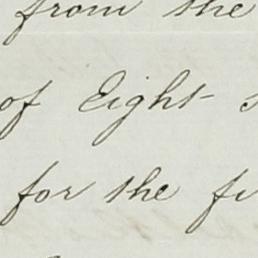 from the
of Eight
for the